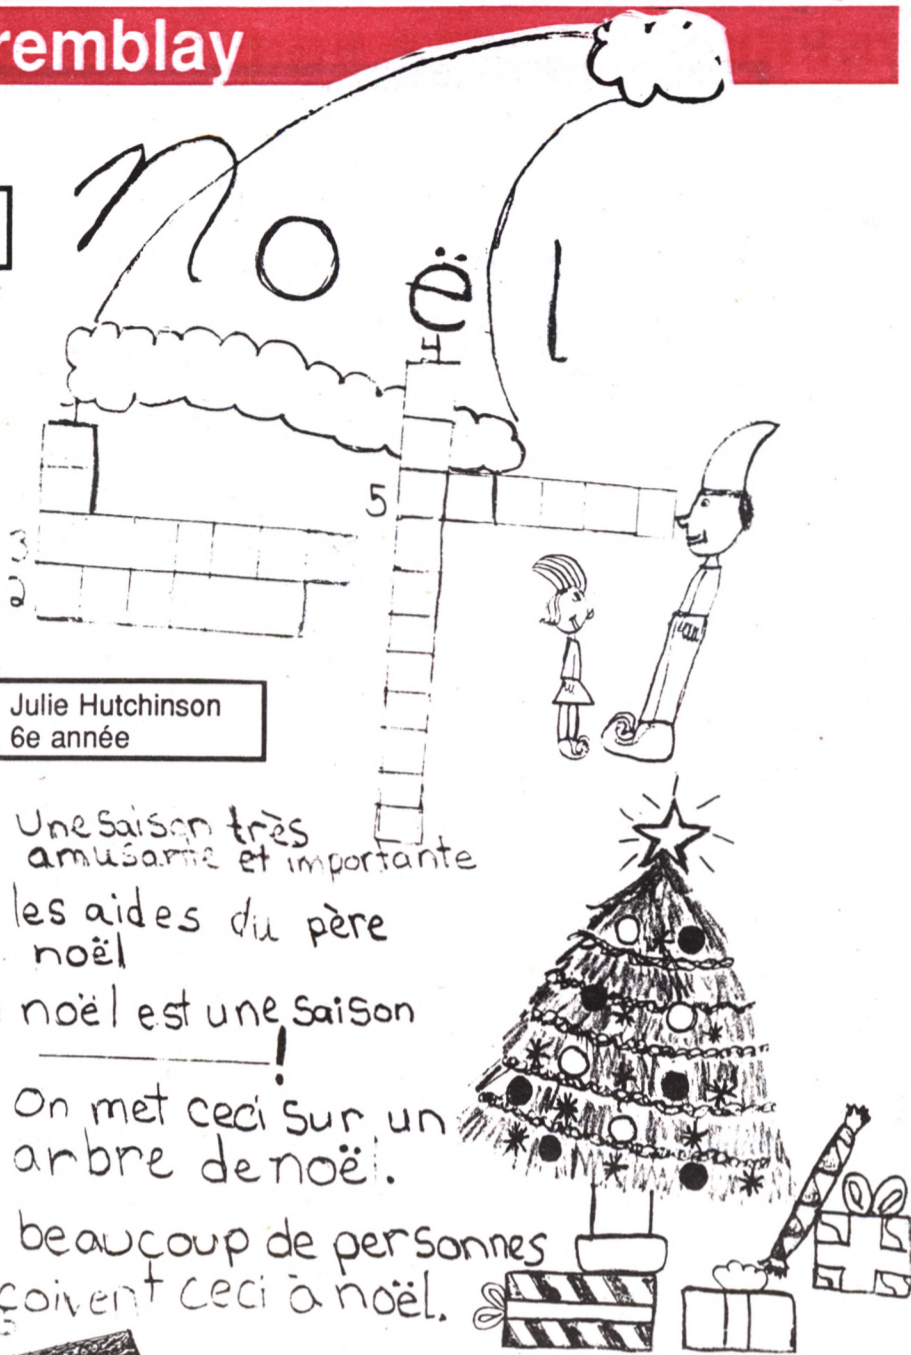 remblay
noël
4
5
3
2
Julie Hutchinson
6e année
Une saison très
amusante et importante
les aides du père
noël
noël est une saison
!
On met ceci sur un
arbre de noël.
beaucoup de personnes
çoivent ceci à noël.